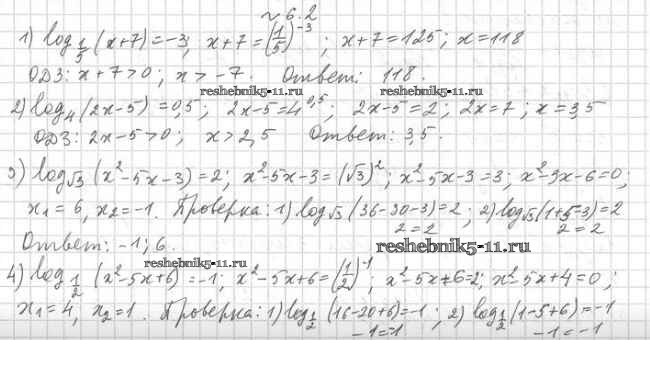 № 6.2
1) log_{1/5}(x+7)=-3; x+7=(1/5)^{-3}; x+7=125; x=118
ОДЗ: x+7>0; x>-7. Ответ: 118.
reshebnik5-11.ru reshebnik5-11.ru
2) log_4(2x-5)=0,5; 2x-5=4^{0,5}; 2x-5=2; 2x=7; x=3,5
ОДЗ: 2x-5>0; x>2,5 Ответ: 3,5.
3) log_{√3}(x²-5x-3)=2; x²-5x-3=(√3)²; x²-5x-3=3; x²-5x-6=0;
x₁=6, x₂=-1. Проверка: 1) log_{√3}(36-30-3)=2; 2) log_{√3}(1+5-3)=2
2=2 2=2
Ответ: -1; 6.
reshebnik5-11.ru
reshebnik5-11.ru
4) log_{1/2}(x²-5x+6)=-1; x²-5x+6=(1/2)^{-1}; x²-5x+6=2; x²-5x+4=0;
x₁=4, x₂=1. Проверка: 1) log_{1/2}(16-20+6)=-1; 2) log_{1/2}(1-5+6)=-1
-1=-1 -1=-1